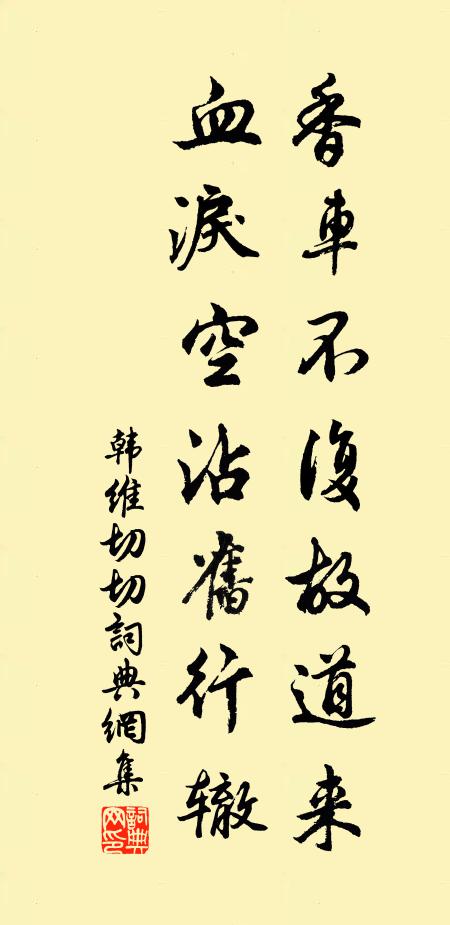 香車不復故道来
血淚空沾舊行辙
韩維切切詞典網集
詞典網印